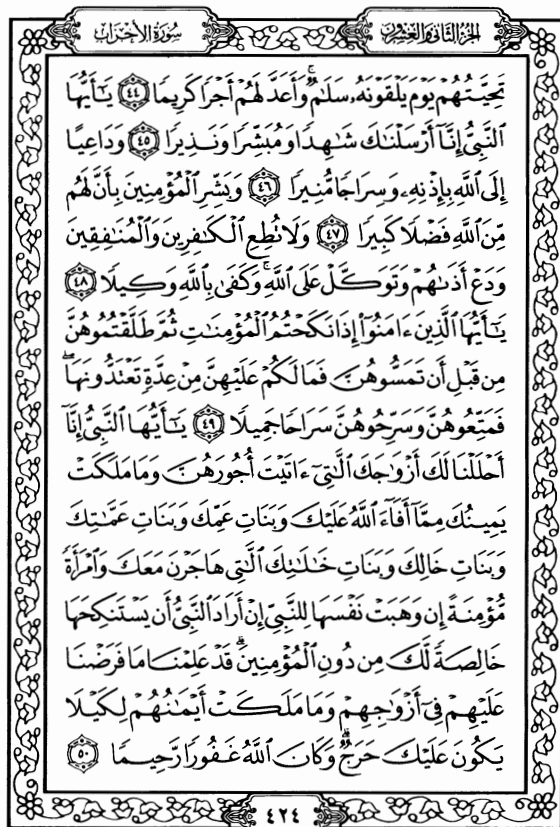 سُورَةُ الأَحْزَابِ
الجُزْءُ الثَّانِي وَالعِشْرُونَ
تَحِيَّتُهُمْ يَوْمَ يَلْقَوْنَهُۥ سَلَٰمٌۚ وَأَعَدَّ لَهُمْ أَجْرًا كَرِيمًا ٤٤ يَٰٓأَيُّهَا
ٱلنَّبِىُّ إِنَّآ أَرْسَلْنَٰكَ شَٰهِدًا وَمُبَشِّرًا وَنَذِيرًا ٤٥ وَدَاعِيًا
إِلَى ٱللَّهِ بِإِذْنِهِۦ وَسِرَاجًا مُّنِيرًا ٤٦ وَبَشِّرِ ٱلْمُؤْمِنِينَ بِأَنَّ لَهُم
مِّنَ ٱللَّهِ فَضْلًا كَبِيرًا ٤٧ وَلَا تُطِعِ ٱلْكَٰفِرِينَ وَٱلْمُنَٰفِقِينَ
وَدَعْ أَذَىٰهُمْ وَتَوَكَّلْ عَلَى ٱللَّهِۚ وَكَفَىٰ بِٱللَّهِ وَكِيلًا ٤٨
يَٰٓأَيُّهَا ٱلَّذِينَ ءَامَنُوٓا۟ إِذَا نَكَحْتُمُ ٱلْمُؤْمِنَٰتِ ثُمَّ طَلَّقْتُمُوهُنَّ
مِن قَبْلِ أَن تَمَسُّوهُنَّ فَمَا لَكُمْ عَلَيْهِنَّ مِنْ عِدَّةٍ تَعْتَدُّونَهَاۖ
فَمَتِّعُوهُنَّ وَسَرِّحُوهُنَّ سَرَاحًا جَمِيلًا ٤٩ يَٰٓأَيُّهَا ٱلنَّبِىُّ إِنَّآ
أَحْلَلْنَا لَكَ أَزْوَٰجَكَ ٱلَّٰتِىٓ ءَاتَيْتَ أُجُورَهُنَّ وَمَا مَلَكَتْ
يَمِينُكَ مِمَّآ أَفَآءَ ٱللَّهُ عَلَيْكَ وَبَنَاتِ عَمِّكَ وَبَنَاتِ عَمَّٰتِكَ
وَبَنَاتِ خَالِكَ وَبَنَاتِ خَٰلَٰتِكَ ٱلَّٰتِى هَاجَرْنَ مَعَكَ وَٱمْرَأَةً
مُّؤْمِنَةً إِن وَهَبَتْ نَفْسَهَا لِلنَّبِىِّ إِنْ أَرَادَ ٱلنَّبِىُّ أَن يَسْتَنكِحَهَا
خَالِصَةً لَّكَ مِن دُونِ ٱلْمُؤْمِنِينَۗ قَدْ عَلِمْنَا مَا فَرَضْنَا
عَلَيْهِمْ فِىٓ أَزْوَٰجِهِمْ وَمَا مَلَكَتْ أَيْمَٰنُهُمْ لِكَيْلَا
يَكُونَ عَلَيْكَ حَرَجٌۗ وَكَانَ ٱللَّهُ غَفُورًا رَّحِيمًا ٥٠
٤٢٤